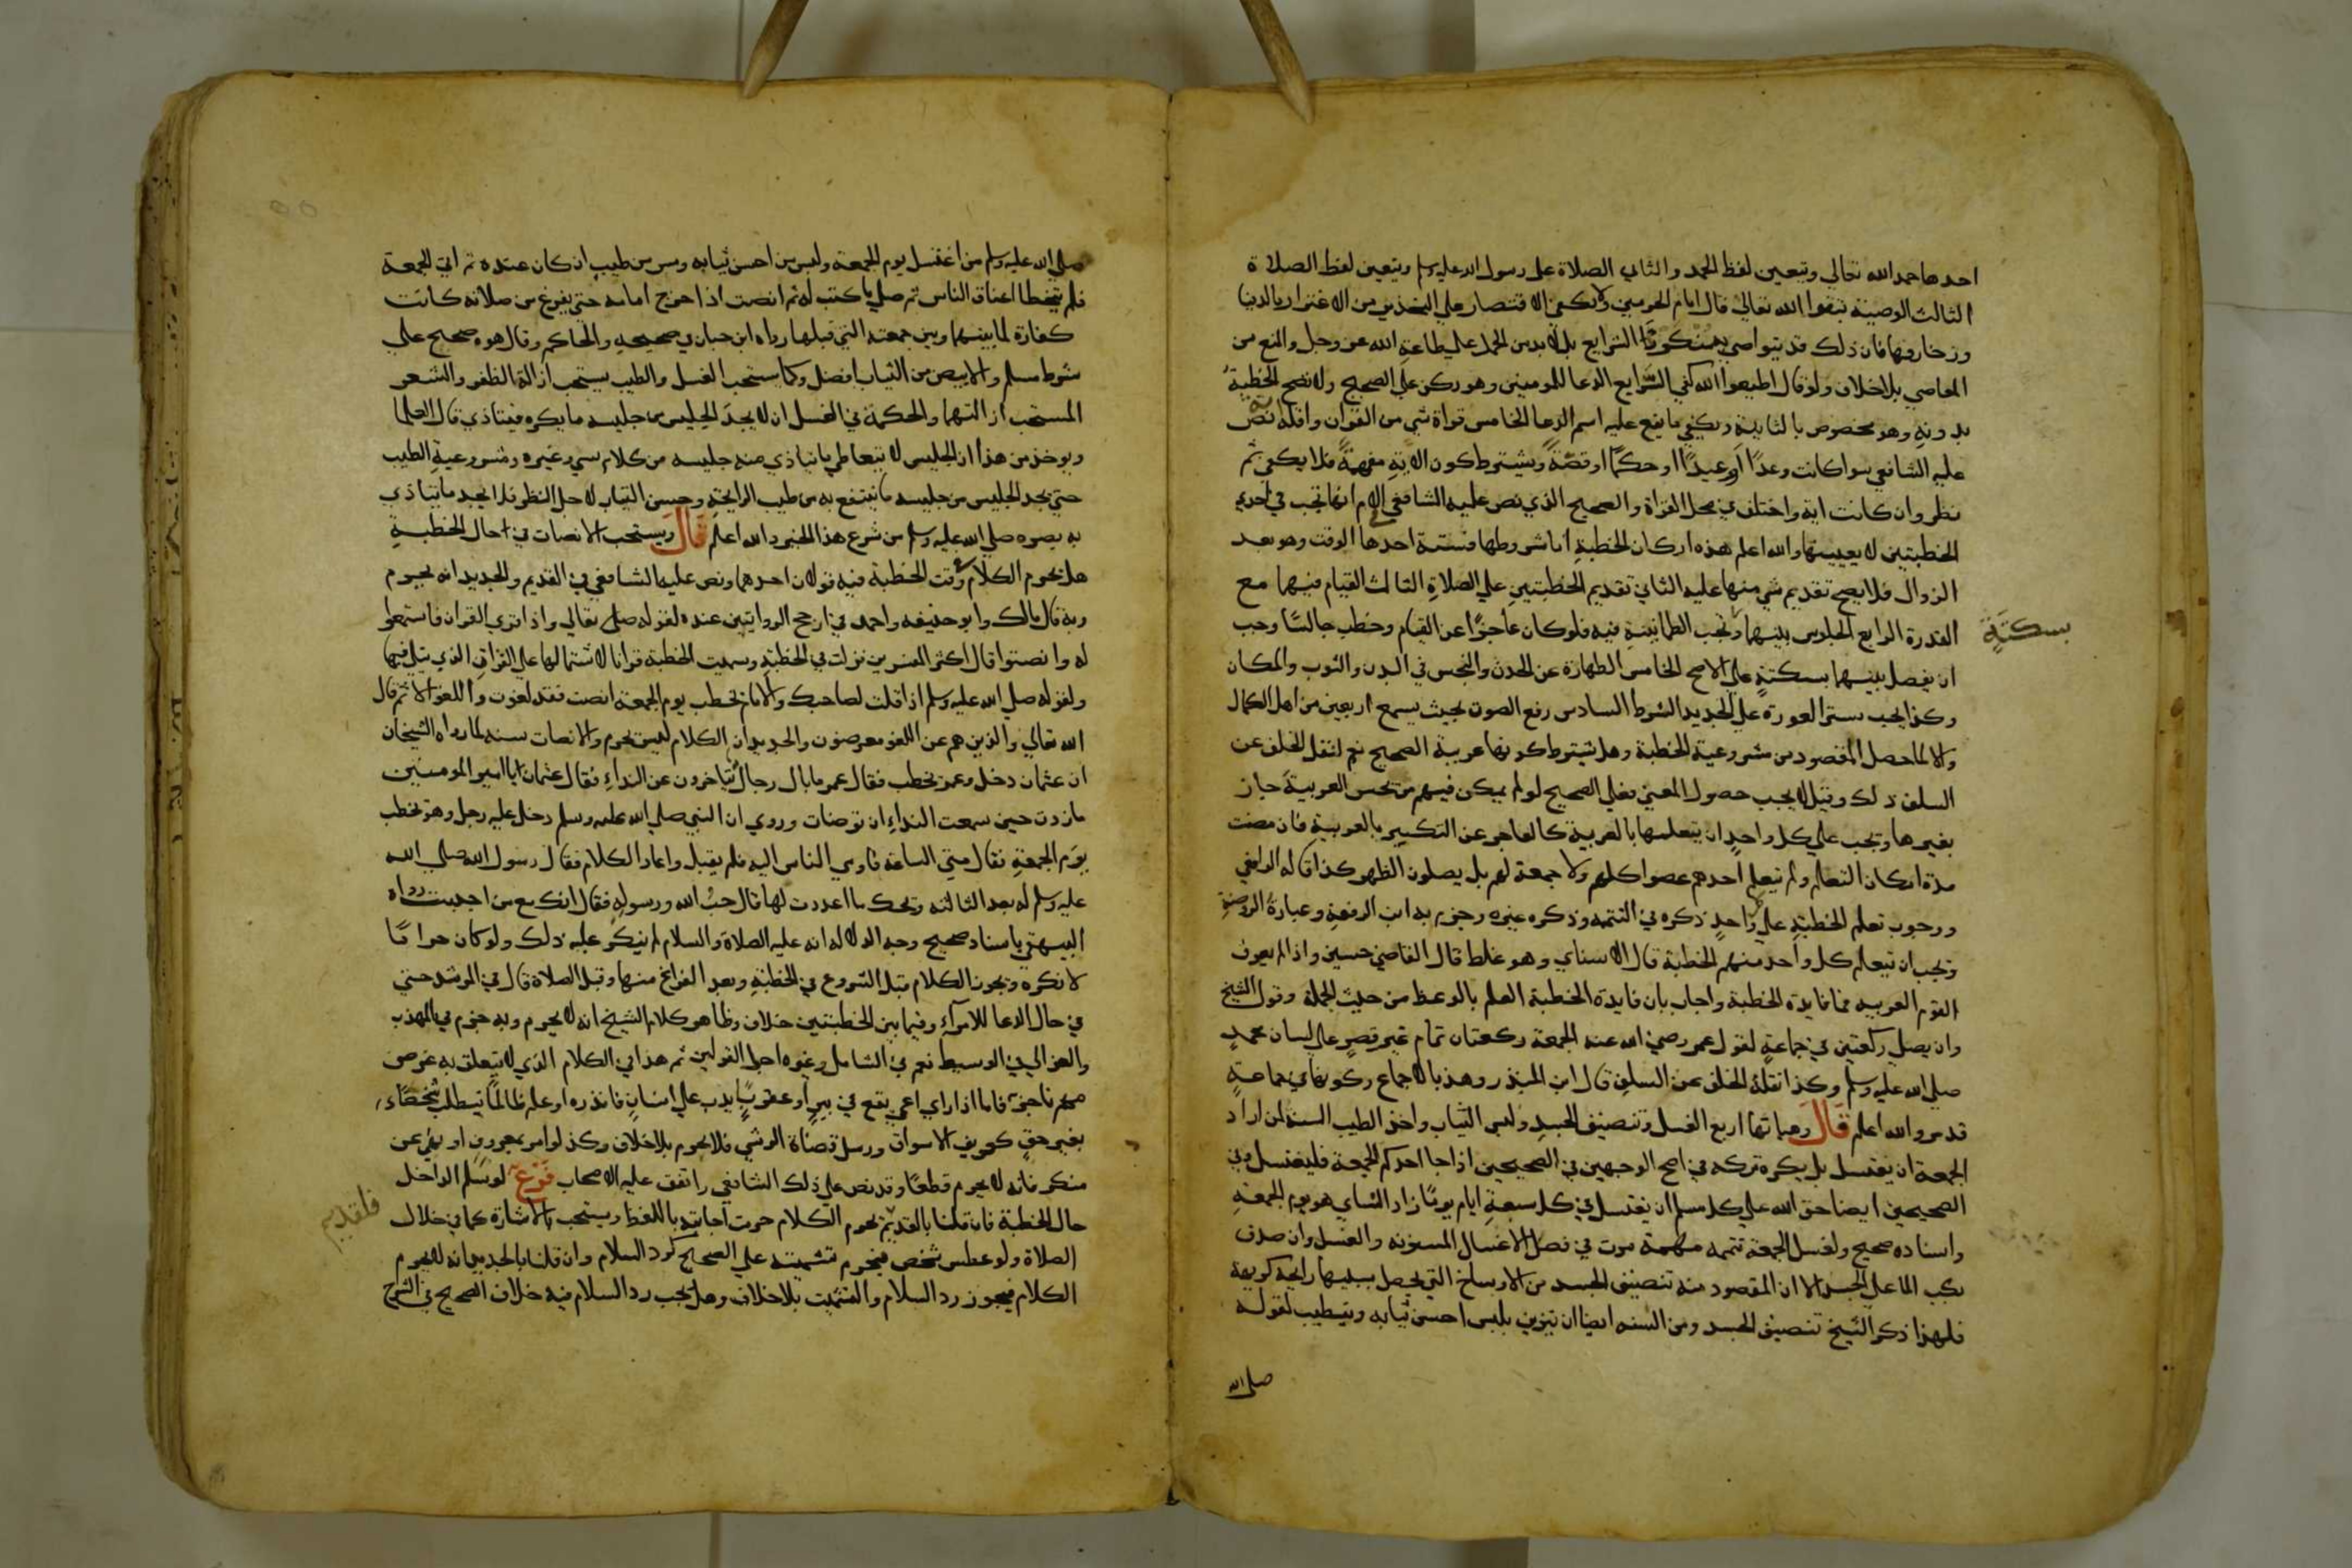 احدها حمد الله تعالي ويتعين لفظ الحمد والثاني الصلاة على رسول الله صلى الله عليه وسلم ويتعين لفظ الصلاة
الثالث الوصية بتقوا الله تعالي قال امام الحرمين ولا يكفي الاقتصار علي التحذير من الاغترار بالدنيا
وزخارفها فان ذلك قد يتواصي به منكروا الشرايع بل لا بد من الحمل علي طاعة الله عز وجل والمنع من
المعاصي بلا خلاف ولو قال اطيعوا الله كفي الرابع الدعا للمومنين وهو ركن علي الصحيح ولا تصح الخطبة
بدونه وهو مخصوص بالثانية ويكفي ما يقع عليه اسم الدعا الخامس قراة شي من القران واقله اية نص
عليه الشافعي سوا كانت وعدًا او وعيدًا او حكمًا او قصةً ويشترط كون الاية مفهمةً فلا يكفي ثم
نظر وان كانت اية واختلف في محل القراة والصحيح الذي نص عليه الشافعي في الام انها تجب في احدي
الخطبتين لا بعينها والله اعلم هذه اركان الخطبة اما شروطها فستة احدها الوقت وهو بعد
الزوال فلا يصح تقديم شي منها عليه الثاني تقديم الخطبتين علي الصلاة الثالث القيام فيهما مع
القدرة الرابع الجلوس بينهما وتجب الطمانينة فيه فلو كان عاجزًا عن القيام وخطب جالسًا وجب
بسكتةٍ
ان يفصل بينهما بسكتةٍ علي الاصح الخامس الطهارة عن الحدث والنجس في البدن والثوب والمكان
وكذا يجب ستر العورة علي الجديد الشرط السادس رفع الصوت بحيث يسمع اربعين من اهل الكمال
والا لما حصل المقصود من مشروعية الخطبة وهل يشترط كونها عربية الصحيح نعم لنقل الخلف عن
السلف ذلك وقيل لا يجب حصول المعني فعلي الصحيح لو لم يكن فيهم من يحسن العربية جاز
بغيرها وتجب علي كل واحدٍ ان يتعلمها بالعربية كالعاجز عن التكبير بالعربية فان مضت
مدة امكان التعلم ولم يتعلم احدهم عصوا كلهم ولا جمعة لهم بل يصلون الظهر كذا قاله الرافعي
ووجوب تعلم الخطبة علي كل واحدٍ ذكره في التتمه وذكره غيره وجزم به ابن الرفعة وعبارة الروضة
وتجب ان يتعلم كل واحد منهم الخطبة قال الاسناي وهو غلط قال القاضي حسين واذا لم يعرف
القوم العربيه فما فايدة الخطبة واجاب بان فايدة الخطبة العلم بالوعظ من حيث الجملة وقول الشيخ
وان يصلي ركعتين في جماعةٍ لقول عمر رضي الله عنه الجمعة ركعتان تمام غير قصرٍ علي لسان محمدٍ
صلي الله عليه وسلم وكذا نقله الخلف عن السلف قال ابن المنذر وهذا بالاجماع وكونها في جماعةٍ
قد مر والله اعلم قال وهياتها اربع الغسل وتنضيف الجسد ولبس الثياب واخذ الطيب السنه لمن اراد
الجمعة ان يغتسل بل يكره تركه في اصح الوجهين في الصحيحين اذا جا احدكم الجمعة فليغتسل وفي
الصحيحين ايضا حق الله علي كل مسلم ان يغتسل في كل سبعة ايام يومًا زاد النساي هو يوم الجمعة
واسناده صحيح ولغسل الجمعة تتمه مهمة مرت في فصل الاغسال المسنونه والغسل وان صدق
بصب الما علي الجسد الا ان المقصود منه تنضيف الجسد من الاوساخ التي يحصل بسببها رايحة كريهة
فلهذا ذكر الشيخ تنضيف الجسد ومن السنه ايضا ان يتزين بلبس احسن ثيابه ويتطيب لقوله
صلى الله
صلي الله عليه وسلم من اغتسل يوم الجمعة ولبس من احسن ثيابه ومس من طيب ان كان عنده ثم اتي الجمعة
فلم يتخطا اعناق الناس ثم صلي ما كتب له ثم انصت اذا خرج امامه حتي يفرغ من صلاته كانت
كفارة لما بينهما وبين جمعته التي قبلها رواه ابن حبان في صحيحه والحاكم وقال هو صحيح علي
شرط مسلم والابيض من الثياب افضل وكما يستحب الغسل والطيب يستحب ازالة الظفر والشعر
المستحب ازالتهما والحكمة في الغسل ان لا يجد الجليس من جليسه ما يكره فيتاذي قال العلما
ويوخذ من هذا ان الجليس لا يتعاطي ما يتاذي منه جليسه من كلام سي وغيره ومشروعية الطيب
حتي يجد الجليس من جليسه ما ينتفع به من طيب الرايحة وحسن الثياب لاجل النظر فلا يجد ما يتاذي
به بصره صلي الله عليه وسلم من شرع هذا الخير والله اعلم قال ويستحب الانصات في حال الخطبة
هل يحرم الكلام وقت الخطبة فيه قولان احدهما ونص عليه الشافعي في القديم والجديد انه يحرم
وبه قال مالك وابو حنيفه واحمد في ارجح الروايتين عنده لقوله تعالي واذا قري القران فاستمعوا
له وانصتوا قال اكثر المفسرين نزلت في الخطبة وسميت الخطبة قرانا لاشتمالها علي القران الذي يتلي فيها
ولقوله صلي الله عليه وسلم اذا قلت لصاحبك والامام يخطب يوم الجمعة انصت فقد لغوت واللغو الاثم قال
الله تعالي والذين هم عن اللغو معرضون والجديد ان الكلام ليس بحرم والانصات سنة لما رواه الشيخان
ان عثمان دخل وعمر يخطب فقال عمر ما بال رجال يتاخرون عن النداء فقال عثمان يا امير المومنين
ما زدت حين سمعت النداء ان توضات وروي ان النبي صلي الله عليه وسلم دخل عليه رجل وهو يخطب
يوم الجمعة فقال متي الساعة فاومي الناس اليه فلم يقبل واعاد الكلام فقال رسول الله صلي الله
عليه وسلم له بعد الثالثه ويحك ما اعددت لها قال حب الله ورسوله فقال انك مع من احببت رواه
البيهقي باسناد صحيح وجه الدلاله انه عليه الصلاة والسلام لم ينكر عليه ذلك ولو كان حرامًا
لانكره ويجوز الكلام قبل الشروع في الخطبة وبعد الفراغ منها وقبل الصلاة قال في المرشد حتي
في حال الدعا للامراء وفيما بين الخطبتين خلاف وظاهر كلام الشيخ انه لا يحرم وبه جزم في المهذب
والغزالي في الوسيط نعم في الشامل وغيره اجرا القولين ثم هذا في الكلام الذي لا يتعلق به غرض
مهم ناجز فاما اذا راي اعمي يقع في بيرٍ او عقربًا يدب علي انسان فانذره او علم ظالمًا يتطلب شخصًا
بغير حقٍ كعريف الاسواق ورسل قضاة الرشي فلا يحرم بلا خلاف وكذا لو امر بمعروف او نهي عن
منكر فانه لا يحرم قطعًا وقد نص علي ذلك الشافعي واتفق عليه الاصحاب فرع لو سلم الداخل
حال الخطبة فان قلنا بالقديم يحرم الكلام حرمت اجابته باللفظ ويستحب بالاشارة كما في خلال
فلقديم
الصلاة ولو عطس شخص فيحرم تشميته علي الصحيح كرد السلام وان قلنا بالجديد انه لا يحرم
الكلام فيجوز رد السلام والتشميت بلا خلاف وهل يجب رد السلام فيه خلاف الصحيح في الشرح